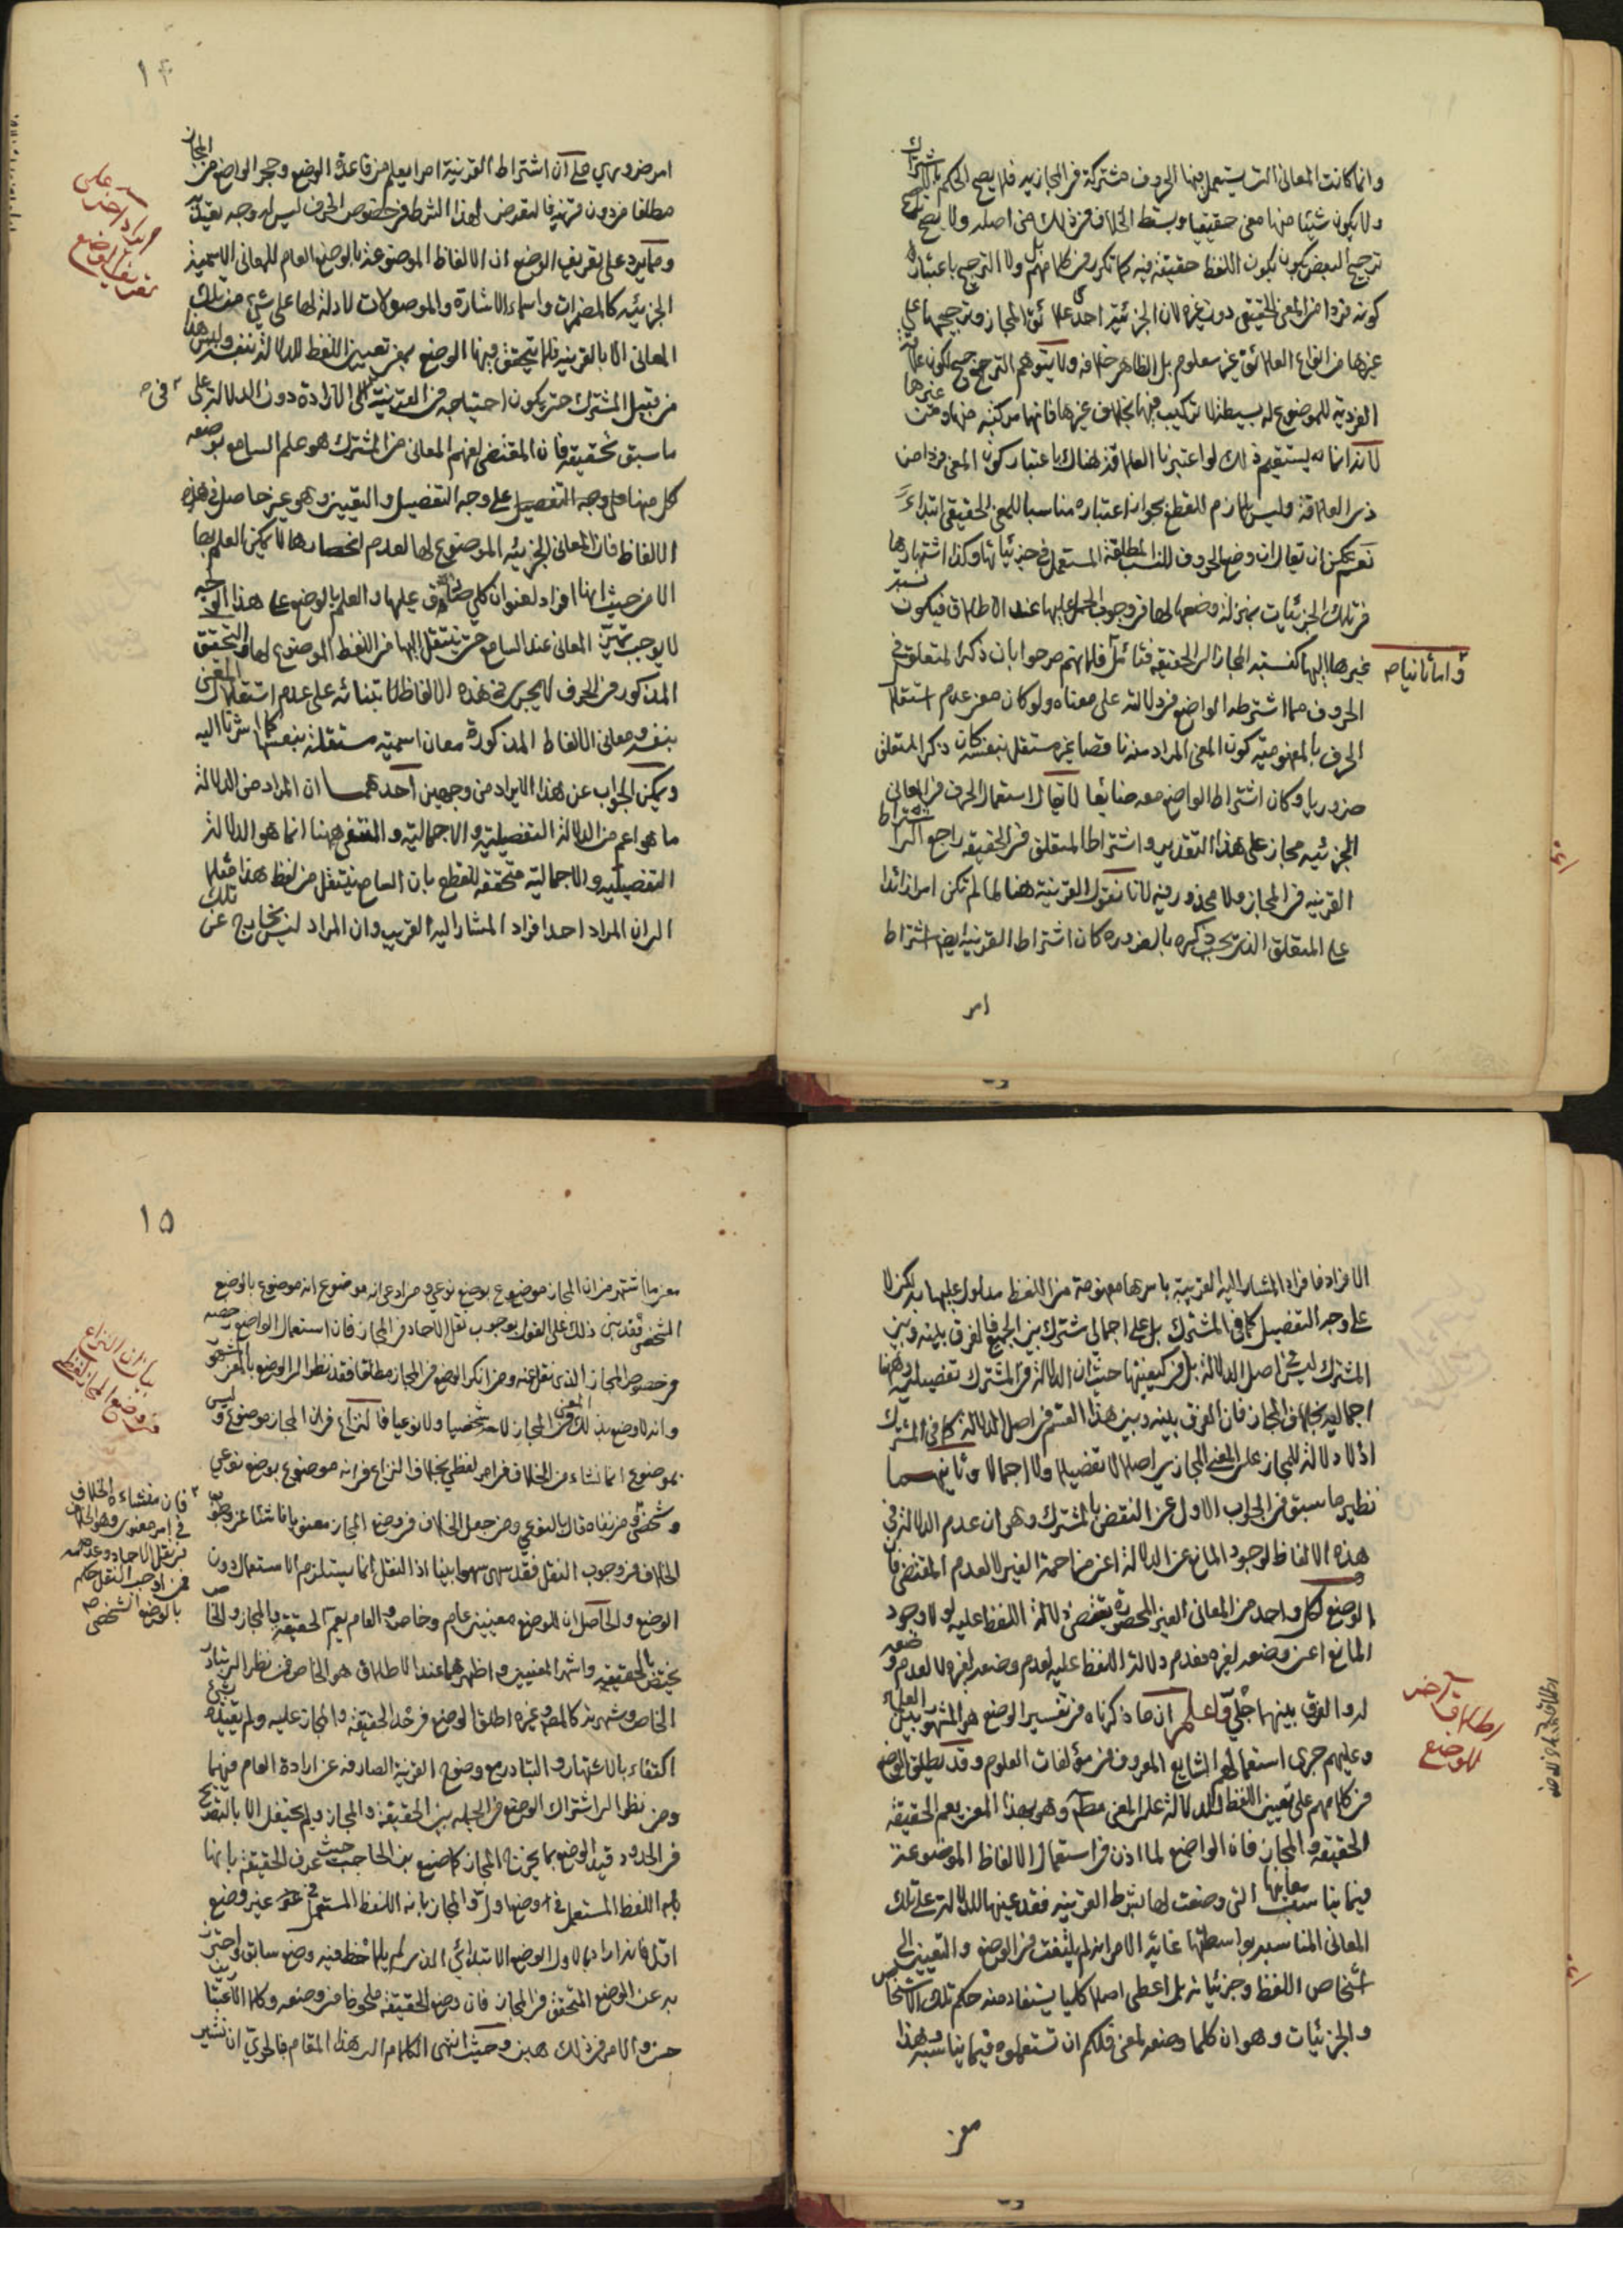 وانما كانت المعانى التى يستعمل فيها الحروف مشتركة فى المجازيه فلا يصح الحكم بالاشتراك
ولا يكون شيئا منها معنى حقيقيا ويسقط الخلاف فى ذلك من اصله ولا يصح
ترجيح البعض بكون اللفظ حقيقة فيه كما تكرر فى كلامهم بل ولا الترجيح باعتبار
كونه فردا من المعنى الحقيقى دون غيره لان الجزئية احد علائق المجاز وترجيحها على
غيرها من انواع العلائق غير معلوم بل الظاهر خلافه ولا يتوهم الترجيح بكون علاقة
الفردية للموضوع له بسيطة لا تركيب فيها بخلاف غيرها فانها مركبة منها ومن غيرها
لانه انما يستقيم ذلك لو اعتبرنا العلاقة هناك باعتبار كون المعنى فردا من
ذى العلاقة وليس بلازم للقطع بجواز اعتباره مناسبا للمعنى الحقيقى ابتداءً
نعم يمكن ان يقال ان وضع الحروف للنسب المطلقة المستعمل فى جزئياتها وكذا اشتهارها
فى تلك الجزئيات بمنزلة وضعها لها فى وجوب الحمل عليها عند الاطلاق فيكون نسبة
غيرها اليها كنسبة المجاز الى الحقيقة فتأمل فلانهم صرحوا بان ذكر المتعلق فى
وأما ثانيا صح
الحروف مما اشترطه الواضع فى دلالته على معناه ولو كان معنى عدم استقلال
الحرف بالمفهومية كون المعنى المراد منه ناقصا غير مستقل بنفسه كان ذكر المتعلق
ضروريا وكان اشتراط الواضع معه ضائعا لا يقال استعمال الحرف فى المعانى
الجزئيه مجاز على هذا التقدير واشتراط المتعلق فى الحقيقه راجع الى اشتراط
القرينه فى المجاز ولا محذور فيه لانا نقول القرينة هنا لما لم تكن امرا زائدا
على المتعلق الذى يجب ذكره بالضرورة كان اشتراط القرينة ايضا اشتراط
امر
١٤
امر ضرورى على ان اشتراط القرينة امر يعلم من قاعدة الوضع وحجر الواضع من المجاز
مطلقا من دون قرينه فالتعرض لهذا الشرط فى خصوص الحرف ليس له وجه يعتد به
ومما يرد على تعريف الوضع ان الالفاظ الموضوعة بالوضع العام للمعانى الاسمية
الجزئيه كالمضمرات واسماء الاشارة والموصولات لا دلالة لها على شئ من تلك
المعانى الا بالقرينه فلا يتحقق فيها الوضع بمعنى تعيين اللفظ للدلالة بنفسه وليس هذا
من قبيل المشترك حتى يكون احتياجه فى القرينة الى الارادة دون الدلالة على
ما سبق تحقيقه فان المقتضى لفهم المعانى من المشترك هو علم السامع بوضعه
كل منها على وجه التفصيل على وجه التفصيل والتعيين وهو غير حاصل فى هذه
الالفاظ فان المعانى الجزئيه الموضوع لها لعدم انحصارها لا يمكن العلم بها
الا من حيث انها افراد لعنوان كلى صادق عليها والعلم بالوضع على هذا الوجه
لا يوجب تميز المعانى عند السامع حتى ينتقل اليها من اللفظ الموضوع لها والتحقق
المذكور فى الحرف لا يجرى فى هذه الالفاظ لابتنائه على عدم استقلال المعنى
بنفسه ومعانى الالفاظ المذكورة معان اسمية مستقلة بنفسها كما اشرنا اليه
ويمكن الجواب عن هذا الايراد من وجهين احدهما ان المراد من الدلالة
ما هو اعم من الدلالة التفصيلية والاجمالية والمنتفى ههنا انما هو الدلالة
التفصيليه والاجمالية متحققة للقطع بان السامع ينتقل من لفظ هذا مثلا
الى ان المراد احد افراد المشار اليه القريب وان المراد ليس بخارج عن تلك
ايراد اخر على
تعريف الوضع
الافراد فافراد المشار اليه القريبة باسرها مفهومة من اللفظ مدلول عليها به لكن لا
على وجه التفصيل كما فى المشترك بل على اجمالى مشترك بين الجميع فالفرق بينه وبين
المشترك ليس فى اصل الدلالة بل فى كيفيتها حيث ان الدلالة فى المشترك تفصيلية وههنا
اجماليه بخلاف المجاز فان الفرق بينه وبين هذا القسم فى اصل الدلالة كما فى المشترك
اذ لا دلالة للمجاز على المعنى المجازى اصلا لا تفصيلا ولا اجمالا وثانيهما
نظير ما سبق فى الجواب الاول عن النقض بالمشترك وهو ان عدم الدلالة فى
هذه الالفاظ لوجود المانع عن الدلالة اعنى مزاحمة الغير لا لعدم المقتضى فان
الوضع لكل واحد من المعانى الغير المحصورة يقتضى دلالة اللفظ عليه لولا وجود
المانع اعنى وضعه لغيره فعدم دلالة اللفظ عليه لعدم وضعه لغيره لا لعدم وضعه
له والفرق بينهما جلى واعلم ان ما ذكرناه فى تفسير الوضع هو المشهور بين العلماء
وعليهم جرى استعمالهم الشايع المعروف فى مؤلفات العلوم وقد يطلق الوضع
فى كلامهم على تعيين اللفظ للدلالة على المعنى مطلقا وهو بهذا المعنى يعم الحقيقة
الحقيقة والمجاز فان الواضع لما اذن فى استعمال الالفاظ الموضوعة
فيما يناسب معانيها التى وضعت لها بشرط القرينه فقد عينها للدلالة على تلك
المعانى المناسبه بواسطتها غاية الامر انه لم يلتفت فى الوضع والتعيين الى
أشخاص اللفظ وجزئياته بل اعطى اصلا كليا يستفاد منه حكم تلك الاشخاص
والجزئيات وهو ان كلما وضعه لمعنى فلكم ان تستعملوه فيما يناسبه وهذا
معنى
اطلاق آخر
للوضع
١٥
معنى ما اشتهر من ان المجاز موضوع بوضع نوعى ومن ادعى انه موضوع انه موضوع بالوضع
الشخصى فقد بنى ذلك على القول بوجوب نقل الآحاد فى المجاز فان استعمال الواضع
فى خصوص المجاز الذى نقل عنه ومن انكر الوضع فى المجاز مطلقا فقد نظر الى الوضع بالمعنى المشهور
وانه لا وضع بذلك المعنى فى المجاز لا شخصيا ولا نوعيا فالنزاع فى ان المجاز موضوع او ليس
بموضوع انما نشاء من الخلاف فى امر لفظى بخلاف النزاع فى انه موضوع بوضع نوعى
الخلاف فى وجوب النقل فقد سهى سهوا بينا اذ النقل انما يستلزم الاستعمال دون
الوضع والحاصل ان للوضع معنيين عام وخاص والعام يعم الحقيقة والمجاز والخاص
يختص بالحقيقه واشهر المعنيين واظهرهما عند الاطلاق هو الخاص فمن نظر الى تبادر
الخاص وشهرته كالمصنف وغيره اطلق الوضع فى حد الحقيقة والمجاز عليه ولم يقيده بشئ
اكتفاء بالاشتهار والتبادر مع وضوح القرينة الصارفه عن ارادة العام فيهما
ومن نظر الى اشتراك الوضع فى الجمله بين الحقيقة والمجاز ولم يحتفل الا بالتصريح
فى الحدود قيد الوضع بما يخرج المجاز كما صنع ابن الحاجب حيث عرف الحقيقة بانها
اللفظ المستعمل فى وضع اول والمجاز بانه اللفظ المستعمل فى غير وضع
اول فانه اراد بالاول الوضع الابتدائى الذى لم يلاحظ فيه وضع سابق واحترز
به عن الوضع المتحقق فى المجاز فان وضع الحقيقة ملحوظ فى وضعه وكلا الاعتبارين
حسن والامر فى ذلك هين وحيث انتهى الكلام الى هذا المقام فالحرى ان نشير
بيان ان النزاع
فى وضع المجاز لفظى
فان منشاء الخلاف
فى امر معنوى وهو الخلاف
فى نقل الآحاد وعدمه
فمن اوجب النقل حكم
بالوضع الشخصى صح